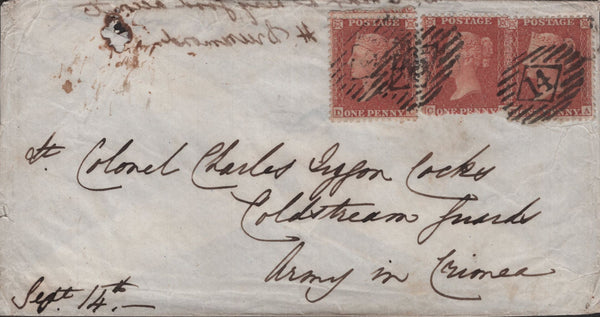 POSTAGE POSTAGE POSTAGE
D ONE PENNY C ONE PENNY ONE PENNY A
14
Lt. Colonel Charles Lygon Cocks
Coldstream Guards
Army in Crimea
Sept 14th.—